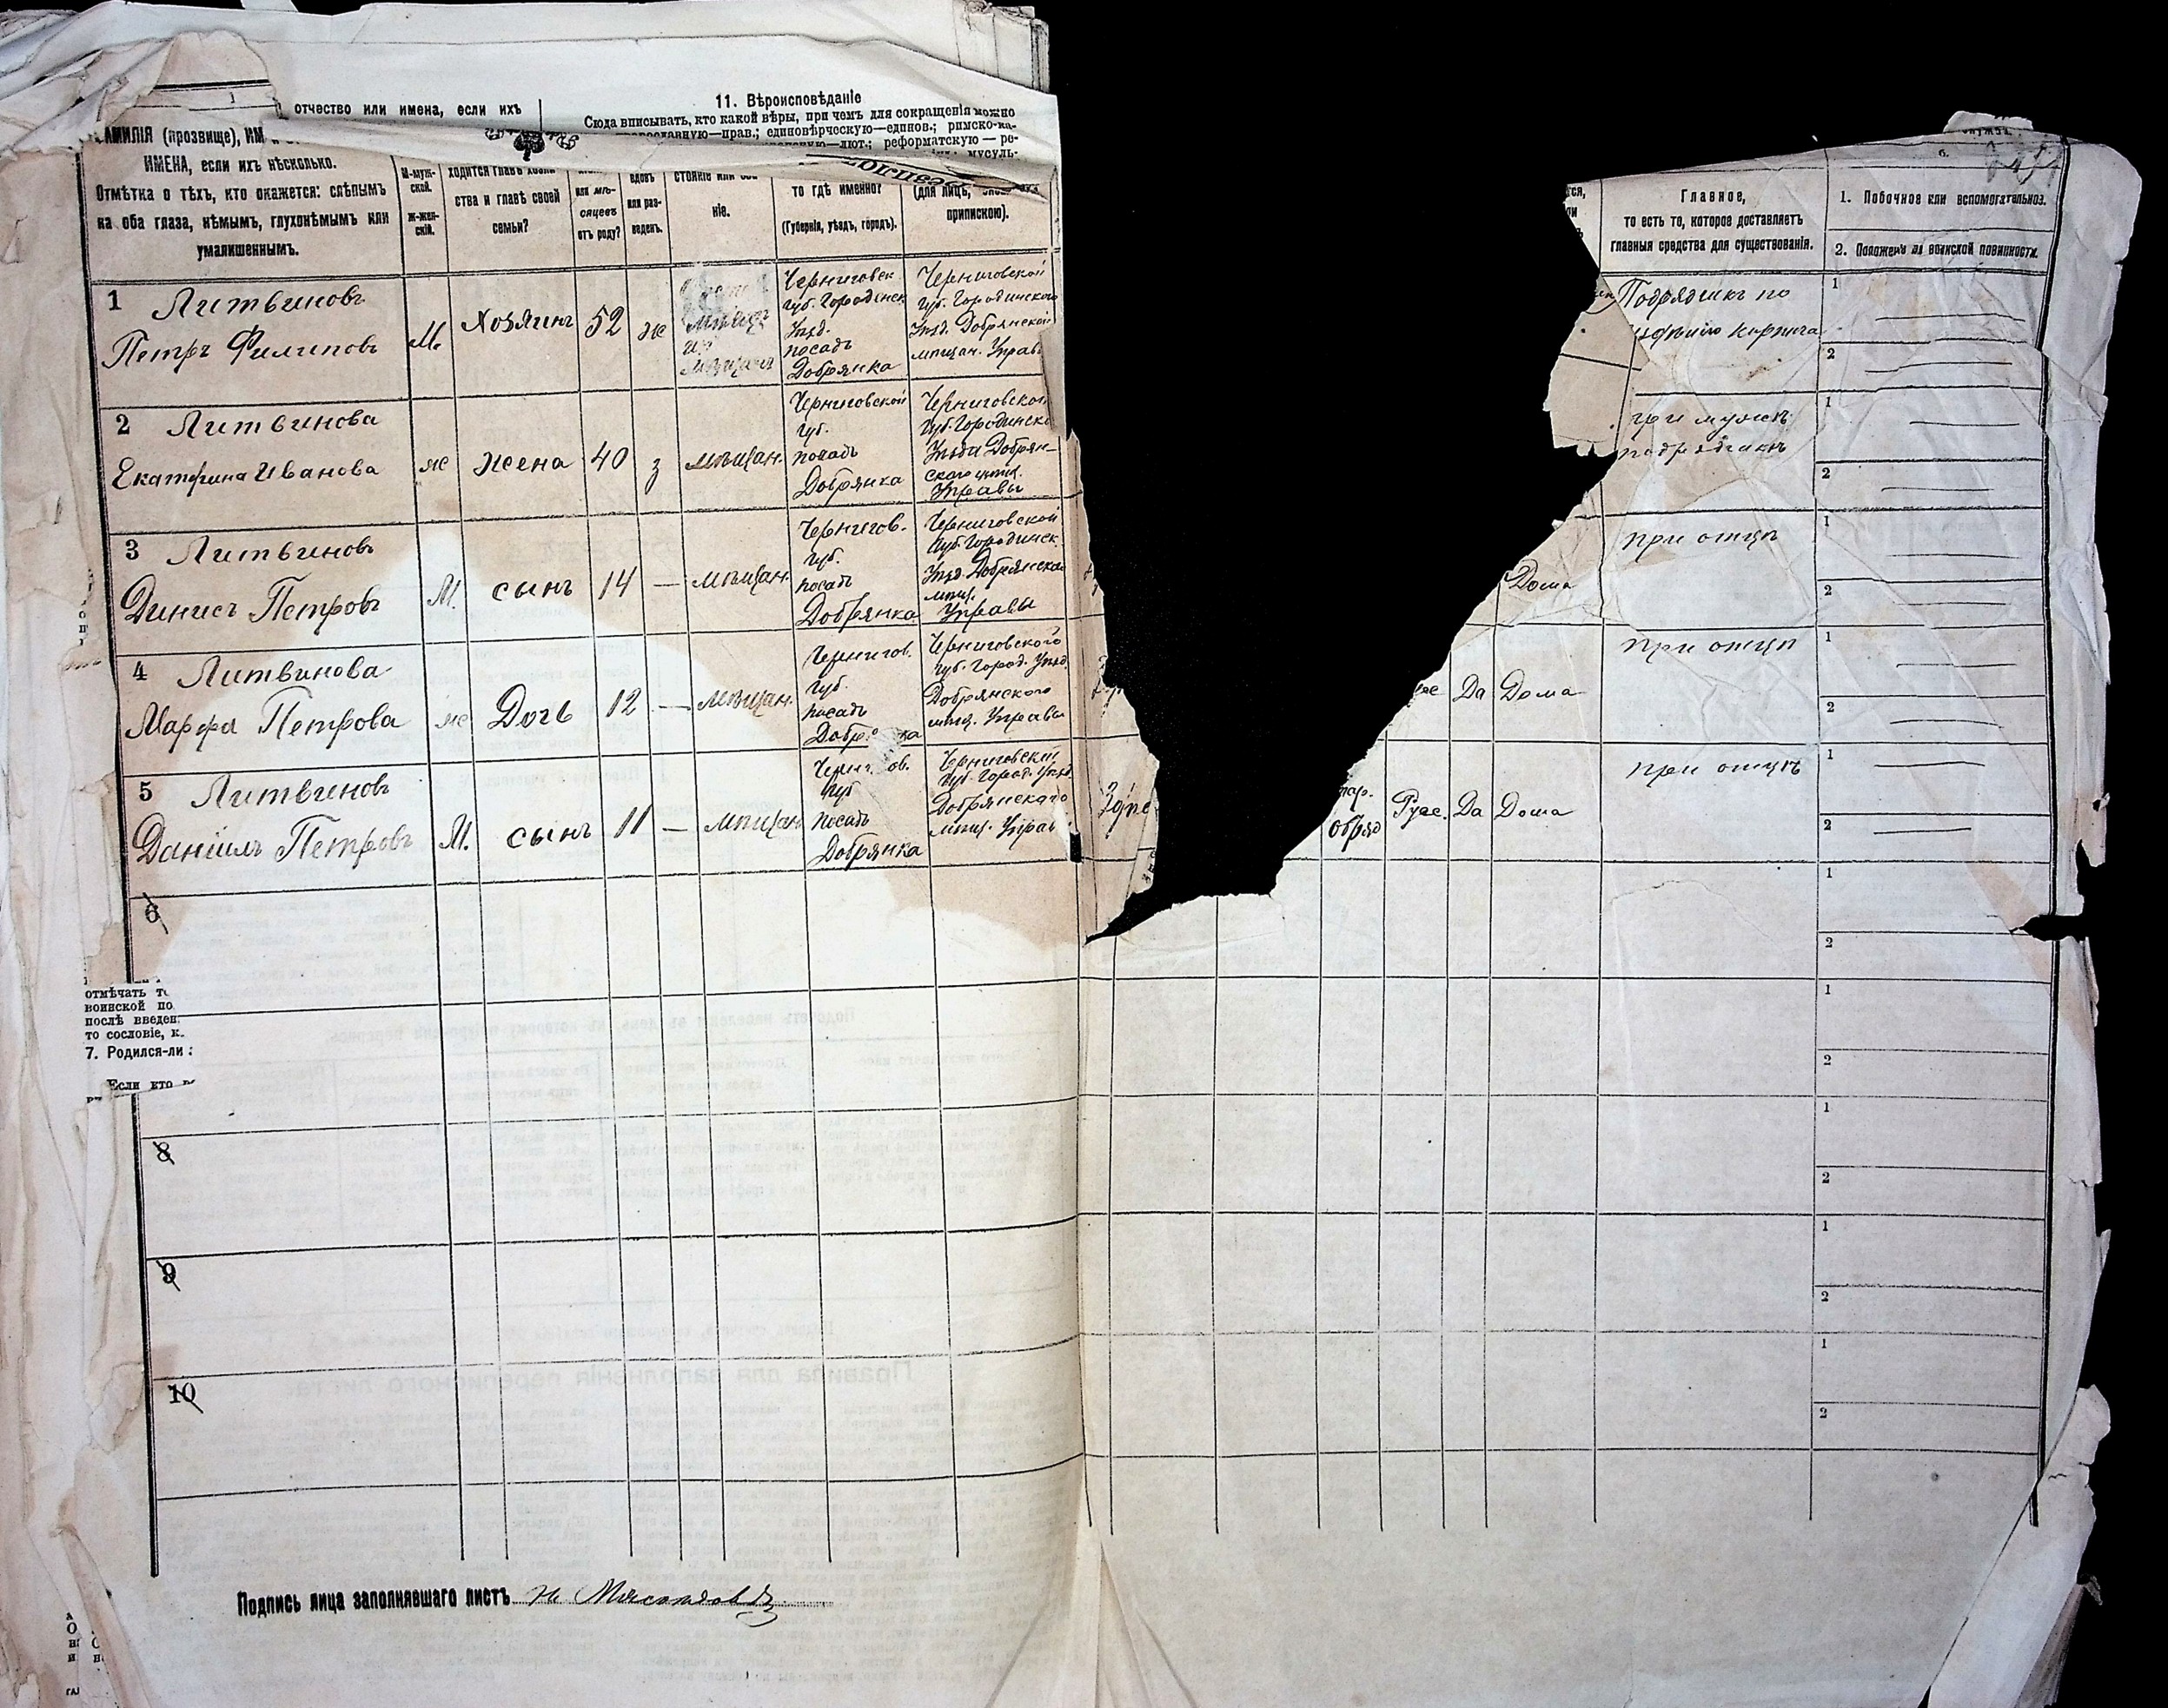 1
отчество или имена, если ихъ
11. Вѣроисповѣданіе
Сюда вписывать, кто какой вѣры, при чемъ для сокращенія можно
православную—прав.; единовѣрческую—единов.; римско-ка-
лют.; реформатскую — ре-
мусуль-
АМИЛІЯ (прозвище), ИМ
ИМЕНА, если ихъ нѣсколько.
Отмѣтка о тѣхъ, кто окажется: слѣпымъ
на оба глаза, нѣмымъ, глухонѣмымъ или
умалишеннымъ.
М-муж-
ской.
ж-жен-
скій.
ходится главѣ хозяй-
ства и главѣ своей
семьи?
или мѣ-
сяцевъ
отъ роду?
вдовъ
или раз-
веденъ.
стояніе или зва-
ніе.
то гдѣ именно?
(Губернія, уѣздъ, городъ).
(для лицъ,
припискою).
6.
Главное,
то есть то, которое доставляетъ
главныя средства для существованія.
1. Побочное или вспомогательное.
2. Положеніе по воинской повинности.
1 Литвиновъ
Петръ Филиповъ
М.
Хозяинъ
52
Черниговск
губ. Городинск
Уѣзд.
посадъ
Добрянка
Черниговской
губ. Городинского
Уѣзд. Добрянской
мѣщан. Управ
Подрядчикъ по
кирпича
1
2
2 Литвинова
Екатерина Иванова
ж
жена
40
з
мѣщан.
Черниговской
губ.
посадъ
Добрянка
Черниговской
губ. Городинско
Уѣзда Добрян-
ского мѣщ.
Управы
при мужѣ
подрядчикѣ
1
2
3 Литвиновъ
Динисъ Петровъ
М.
сынъ
14
—
мѣщан.
Чернигов.
губ.
посадъ
Добрянка
Черниговской
губ. Городинск.
Уѣзд. Добрянской
мѣщ.
Управы
Дома
при отцѣ
1
2
4 Литвинова
Марфа Петрова
ж
Дочь
12
—
мѣщан.
Чернигов.
губ.
посадъ
Добр ка
Черниговского
губ. Город. Уѣзд.
Добрянского
мѣщ. Управы
Да
Дома
при отцѣ
1
2
5 Литвиновъ
Даніилъ Петровъ
М.
сынъ
11
—
мѣщан
Черни ов.
губ
посадъ
Добрянка
Черниговскій
губ. Город. Уѣзд.
Добрянскаго
мѣщ. Управ
Здѣс
тар.
обряд
Русс.
Да
Дома
при отцѣ
1
2
6
1
2
отмѣчать т
воинской по
послѣ введен
то сословіе, к
7. Родился-ли
Если кто
1
2
8
1
2
9
1
2
10
1
2
Подпись лица заполнявшаго листъ Н Мясоѣдовъ